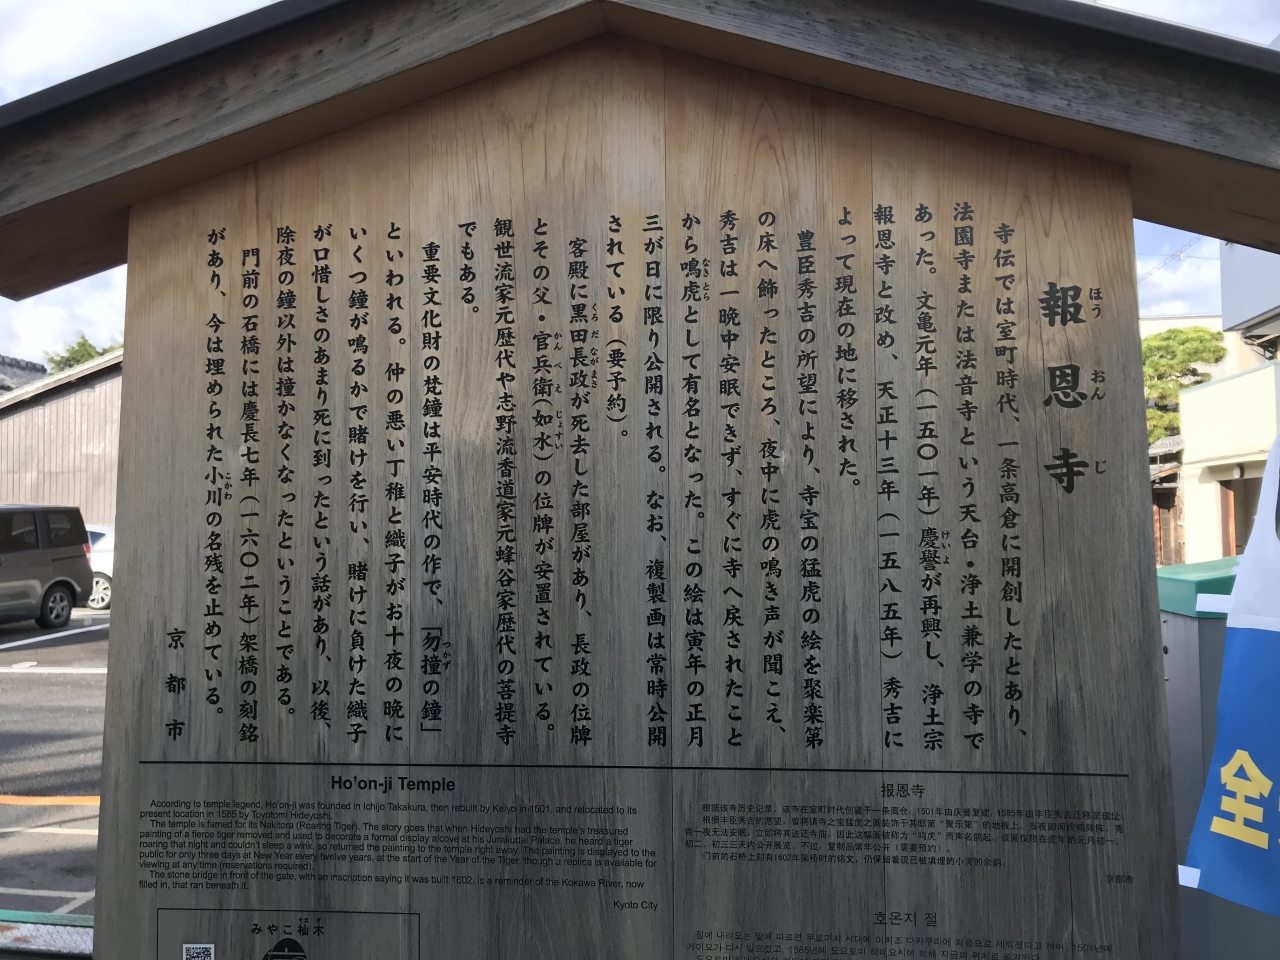 報恩寺
ほう おん じ
寺伝では室町時代、一条高倉に開創したとあり、
法園寺または法音寺という天台・浄土兼学の寺で
あった。文亀元年（一五〇一年）慶誉が再興し、浄土宗
けいよ
報恩寺と改め、天正十三年（一五八五年）秀吉に
よって現在の地に移された。
豊臣秀吉の所望により、寺宝の猛虎の絵を聚楽第
の床へ飾ったところ、夜中に虎の鳴き声が聞こえ、
秀吉は一晩中安眠できず、すぐに寺へ戻されたこと
から鳴虎として有名となった。この絵は寅年の正月
なきとら
三が日に限り公開される。なお、複製画は常時公開
されている（要予約）。
客殿に黒田長政が死去した部屋があり、長政の位牌
くろだながまさ
とその父・官兵衛（如水）の位牌が安置されている。
かんべえ じょすい
観世流家元歴代や志野流香道家元蜂谷家歴代の菩提寺
でもある。
重要文化財の梵鐘は平安時代の作で、「勿撞の鐘」
つかず
といわれる。仲の悪い丁稚と織子がお十夜の晩に
いくつ鐘が鳴るかで賭けを行い、賭けに負けた織子
が口惜しさのあまり死に到ったという話があり、以後、
除夜の鐘以外は撞かなくなったということである。
門前の石橋には慶長七年（一六〇二年）架橋の刻銘
があり、今は埋められた小川の名残を止めている。
こかわ
京都市
Ho'on-ji Temple
According to temple legend, Ho'on-ji was founded in Ichijo Takakura, then rebuilt by Keiyo in 1501, and relocated to its
present location in 1585 by Toyotomi Hideyoshi.
The temple is famed for its Nakitora (Roaring Tiger). The story goes that when Hideyoshi had the temple's treasured
painting of a fierce tiger removed and used to decorate a formal display alcove at his Jurakudai Palace, he heard a tiger
roaring that night and couldn't sleep a wink, so returned the painting to the temple right away. The painting is displayed to the
public for only three days at New Year every twelve years, at the start of the Year of the Tiger, though a replica is available for
viewing at any time (reservations required).
The stone bridge in front of the gate, with an inscription saying it was built 1602, is a reminder of the Kokawa River, now
filled in, that ran beneath it.
Kyoto City
报恩寺
根据该寺历史记录，该寺在室町时代创建于一条高仓，1501年由庆誉复建，1585年由丰臣秀吉迁移至现址。
门前的石桥上刻有1602年架桥时的铭文，仍保留着现已被填埋的小河的余韵。
京都市
호온지 절
みやこ杣木
そまぎ
全